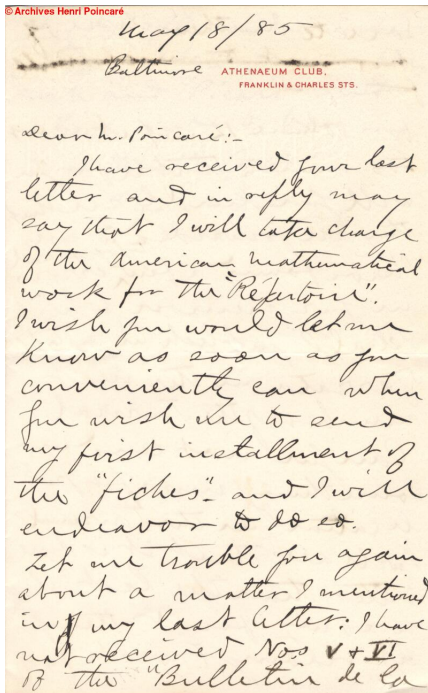 © Archives Henri Poincaré
May 18/85
Baltimore ATHENAEUM CLUB,
FRANKLIN & CHARLES STS.
Dear M. Poincaré:-
I have received your last
letter and in reply may
say that I will take charge
of the American mathematical
work for the "Répertoire".
I wish you would let me
know as soon as you
conveniently can when
you wish me to send
my first installment of
the "fiches" - and I will
endeavor to do so.
Let me trouble you again
about a matter I mentioned
in my last letter: I have
not received Nos V + VI
of the "Bulletin de la